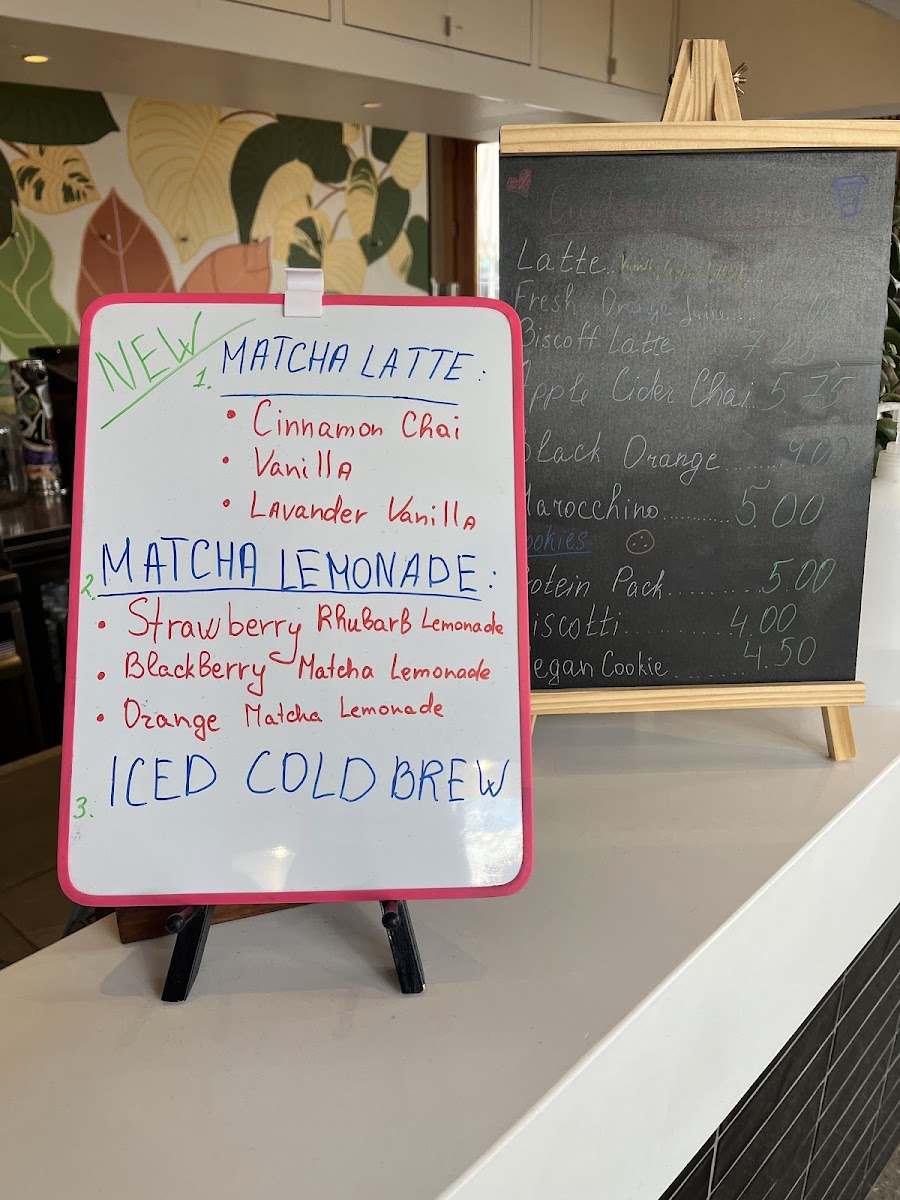 NEW
1. MATCHA LATTE:
• Cinnamon Chai
• Vanilla
• Lavander Vanilla
2. MATCHA LEMONADE:
• Strawberry Rhubarb Lemonade
• BlackBerry Matcha Lemonade
• Orange Matcha Lemonade
3. ICED COLD BREW
Latte
Fresh Orange Juice....
Biscoff Latte
Apple Cider Chai 5.75
Black Orange ....... 9.00
Marocchino........... 5.00
ookies
otein Pack.......... 5.00
iscotti........... 4.00
egan Cookie....... 4.50